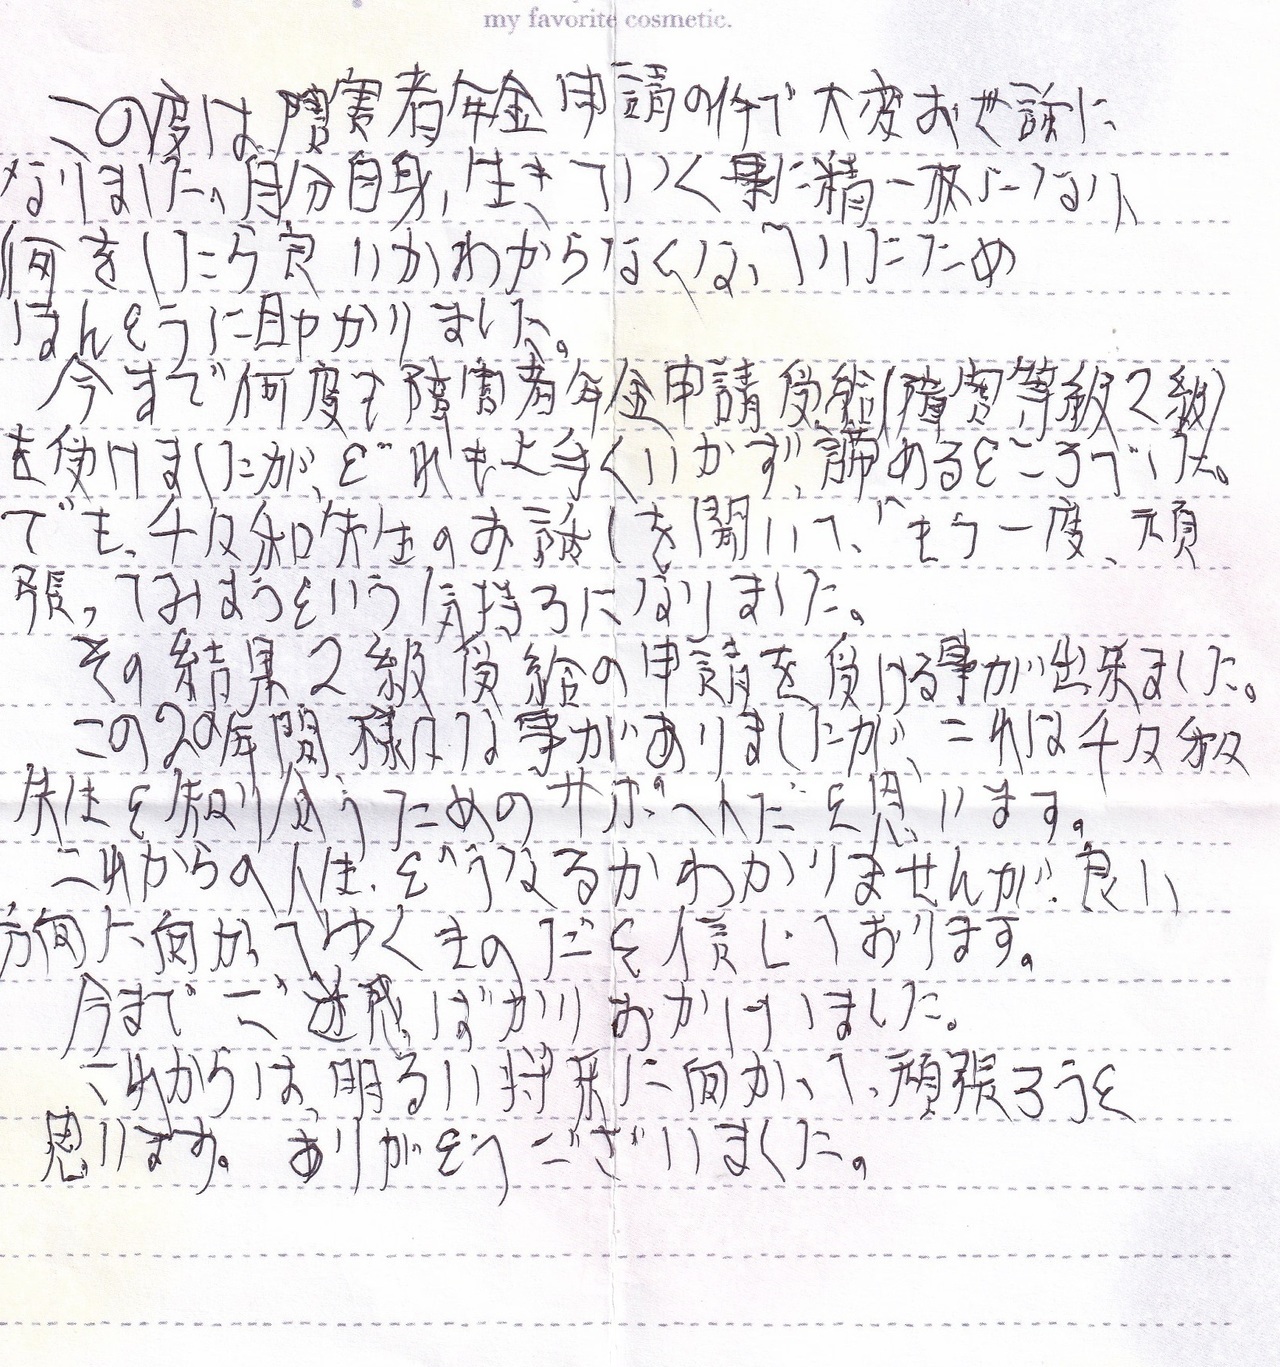 my favorite cosmetic.
この度は障害者年金申請の件で大変お世話に
なりました。自分自身、生きていく事に精一杯になり、
何をしたら良いかわからなくなっていたため
ほんとうに助かりました。
今まで何度も障害者年金申請受給(障害等級2級)
を受けましたが、どれも上手くいかず、諦めるところでした。
でも、千代和先生のお話しを聞いて、もう一度、頑
張ってみようという気持ちになりました。
その結果2級受給の申請を受ける事が出来ました。
この20年間様々な事がありましたが、これは千代和
先生と知り合うためのサポートだと思います。
これからの人生、どうなるかわかりませんが、良い
方向に向かってゆくものだと信じております。
今までご迷惑ばかりおかけいました。
これからは、明るい将来に向かって、頑張ろうと
思います。ありがとうございました。